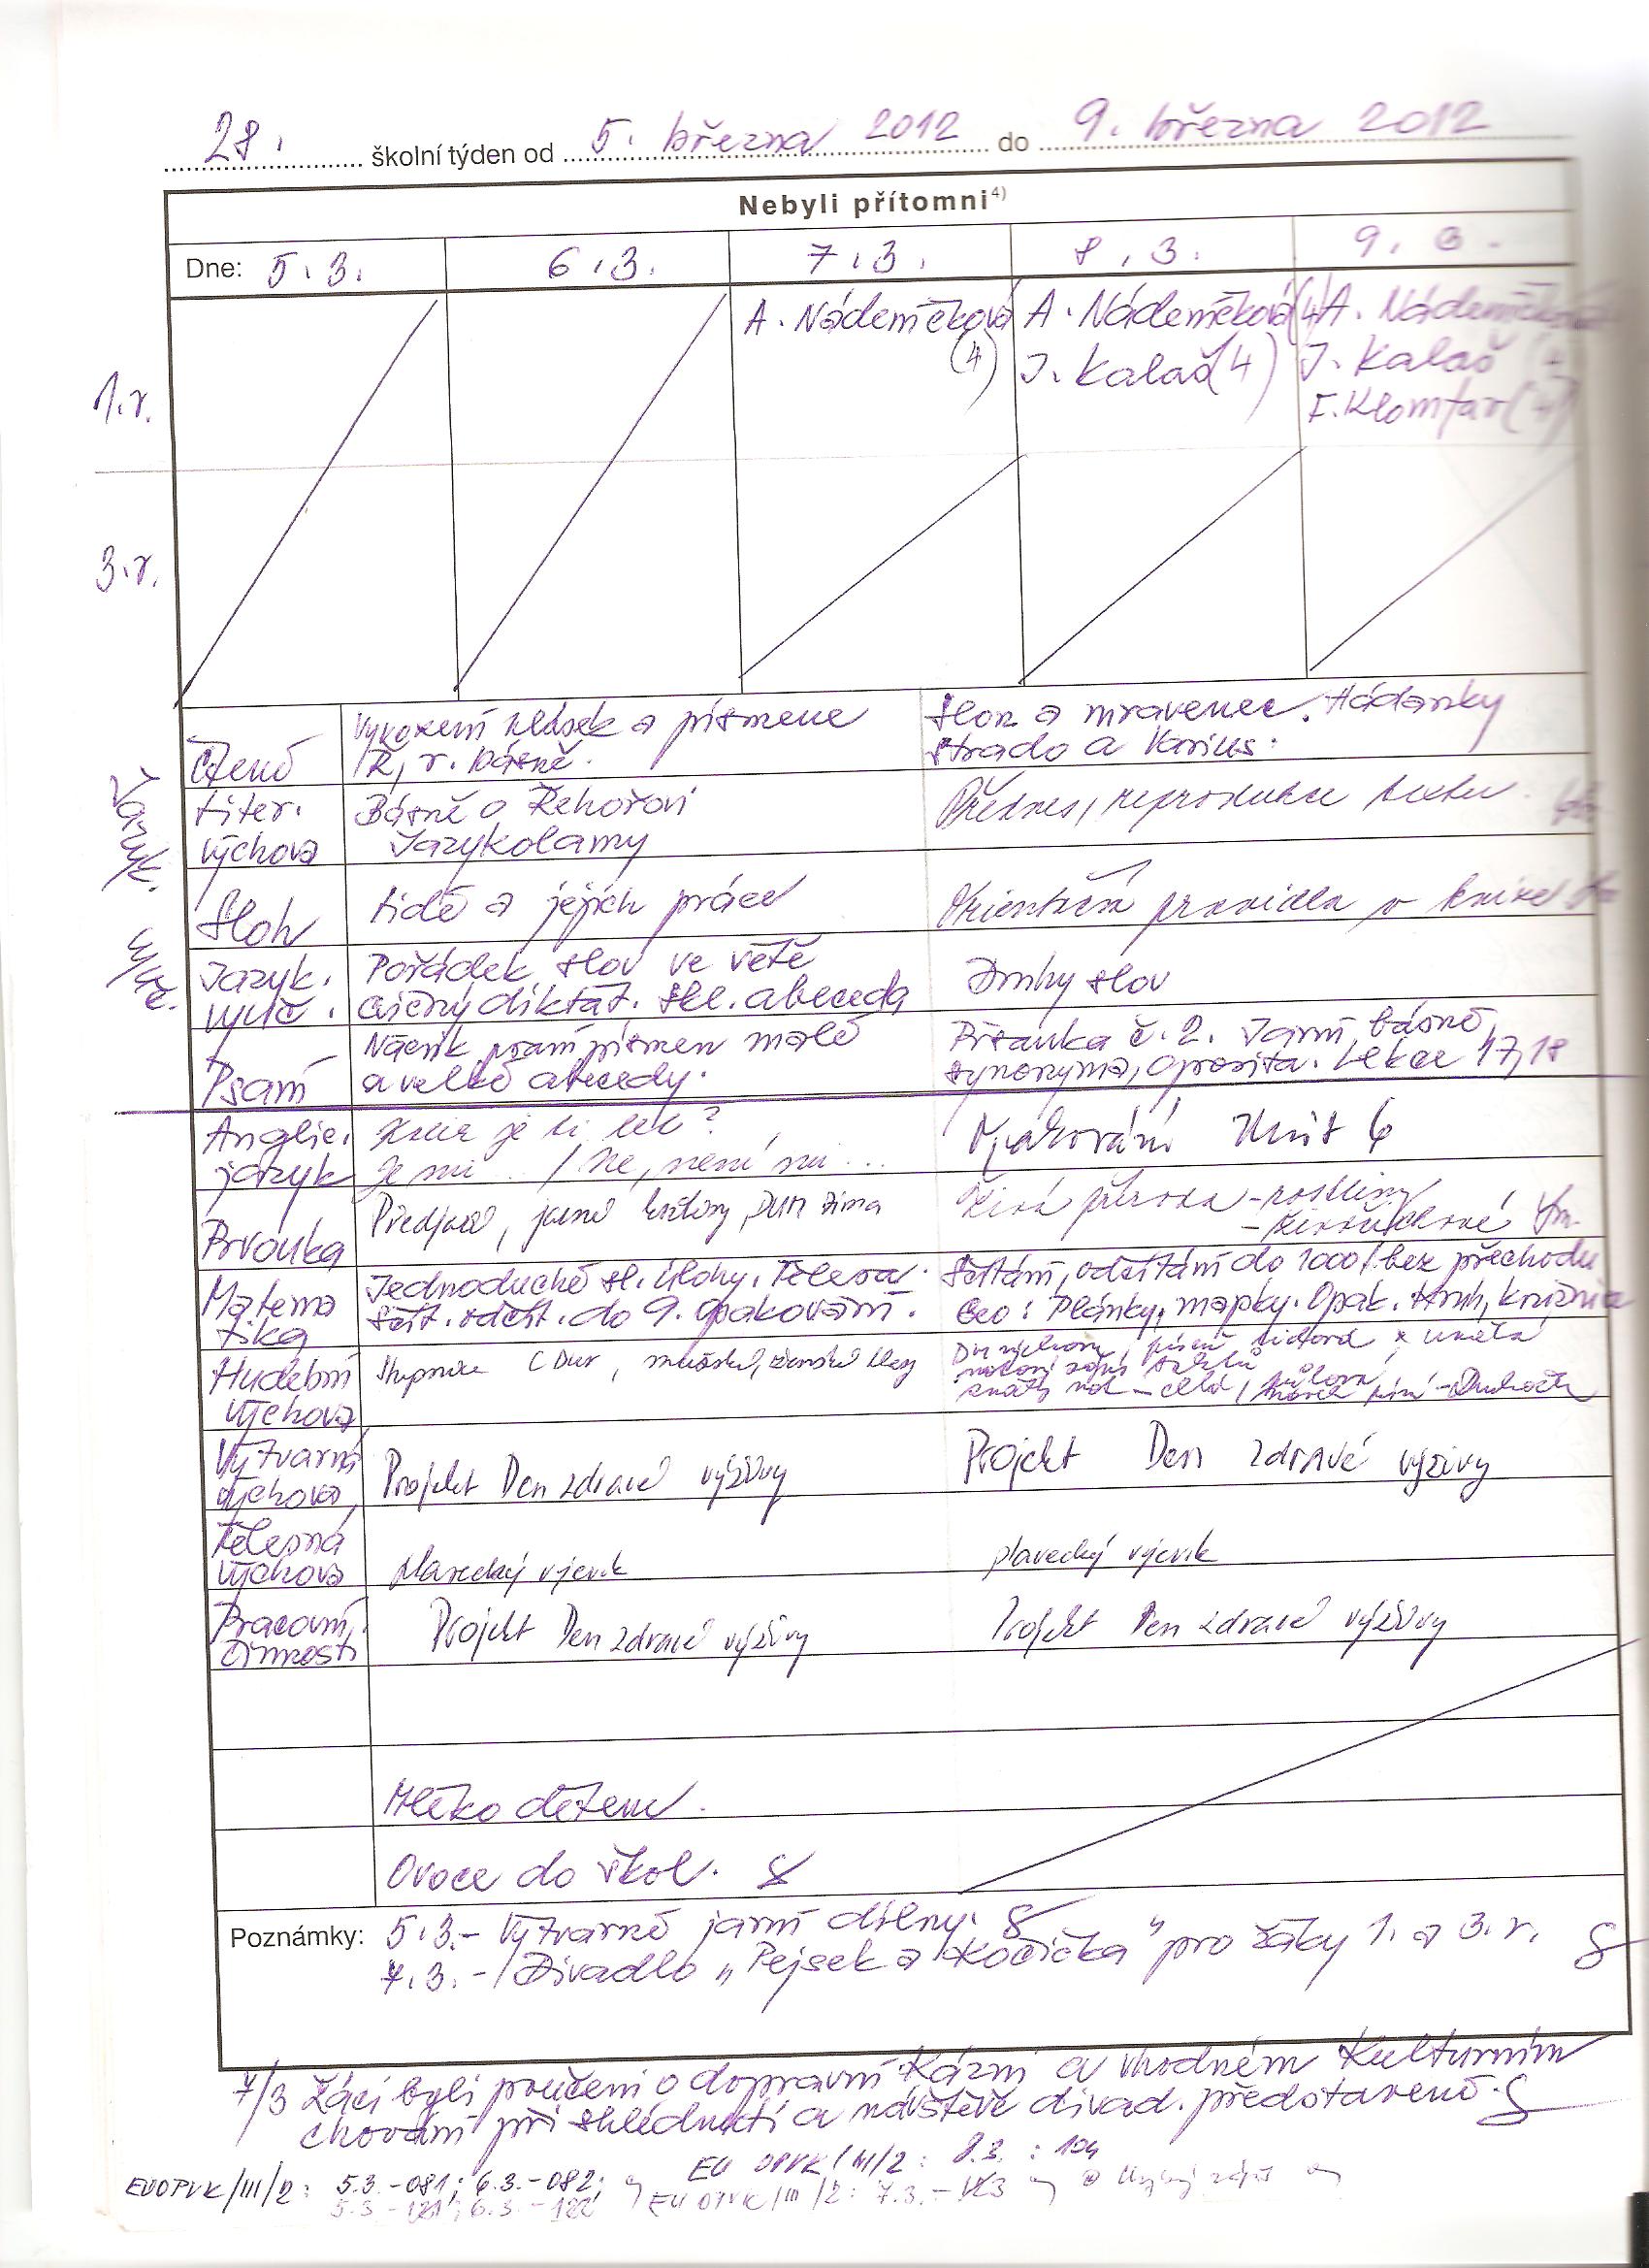 28. školní týden od 5. března 2012 do 9. března 2012
Nebyli přítomni4)
Dne: 5.3. 6.3. 7.3. 8.3. 9.3.
1.r.
A. Nádeníčková (4)
A. Nádeníčková (4)
J. Kalaš (4)
A. Nádeníčková
J. Kalaš (4
F. Klomfar (4)
3.r.
Jazyk. vyuč.
Čtení
Vyvození hlásek a písmene
Ř, ř. Básně.
Slon a mravenec. Hádanky
Liter. výchova
Básně o Řehořovi
Jazykolamy
Přednes, reprodukce textu.
Sloh
Lidé a jejich práce
Orientační pravidla v knize
Jazyk. vyuč.
Pořádek slov ve větě
cvičný diktát. Sl. abeceda
Druhy slov
Psaní
Nácvik psaní písmen malé
a velké abecedy.
Písanka č. 2. Jarní básně,
synonyma, opozita. Lekce 17,18
Anglic. jazyk
Kolik je ti let?
Je mi... / Ne, není mi...
Opakování Unit 6
Prvouka
Předjaří, jarní květiny, DUM zima
Živá příroda - rostliny
- živočichové
Matematika
Jednoduché sl. úlohy. Tělesa.
Sčít. odčít. do 9. Opakování.
Sčítání, odčítání do 1000/bez přechodu
Geo: Plánky, mapky. Opak. kruh, kružnice
Hudební výchova
Stupnice C Dur, mužské, ženské hlasy
Výtvarná výchova
Projekt Den zdravé výživy
Projekt Den zdravé výživy
Tělesná výchova
plavecký výcvik
plavecký výcvik
Pracovní činnosti
Projekt Den zdravé výživy
Projekt Den zdravé výživy
Mléko dětem.
Ovoce do škol.
Poznámky: 5.3.- Výtvarné jarní dílny.
7.3.- Divadlo „Pejsek a Kočička" pro žáky 1. a 3.r.
7/3 Žáci byli poučeni o dopravní kázni a vhodném kulturním
chování při shlédnutí a návštěvě divad. představení.
EU OPVK/III/2: 8.3.: 104
EU OPVK/III/2: 5.3.-081; 6.3.-082;
5.3.-121; 6.3.-122 EU OPVK/III/2: 7.3.-123